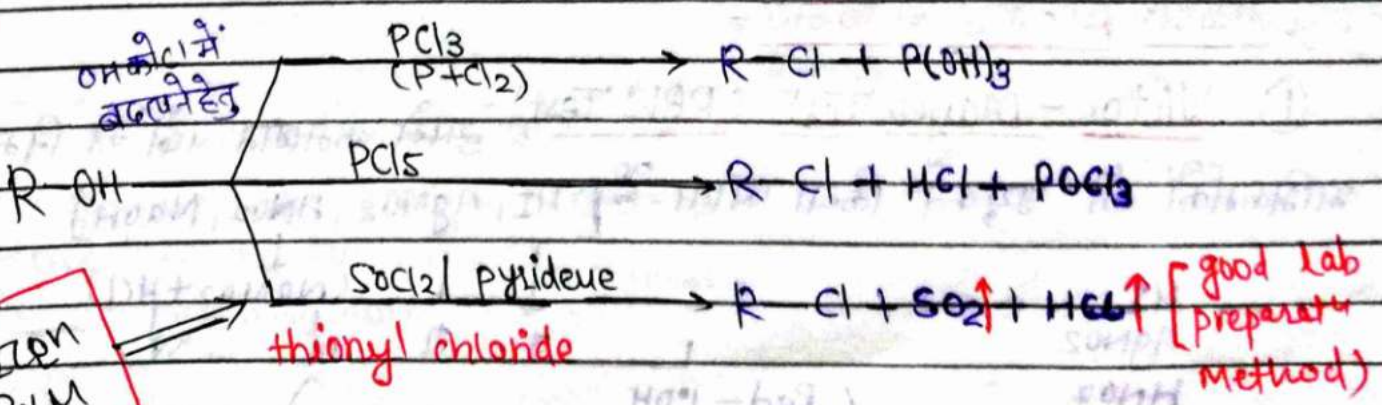 OH को Cl में
बदलने हेतु
PCl3
(P+Cl2)
R-Cl + P(OH)3
R-OH
PCl5
R-Cl + HCl + POCl3
SOCl2/ pyrideue
R-Cl + SO2↑ + HCl↑ [good lab
preparatn
Method)
thionyl chloride